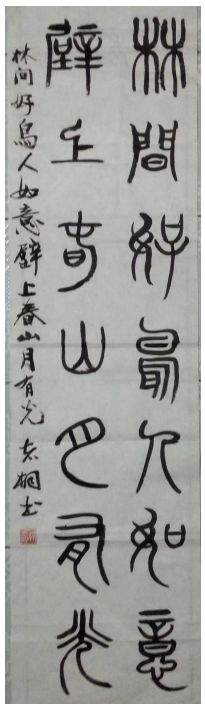 林間好鳥人如意
壁上春山月有光
林间好鳥人如意壁上春山月有光 桐书